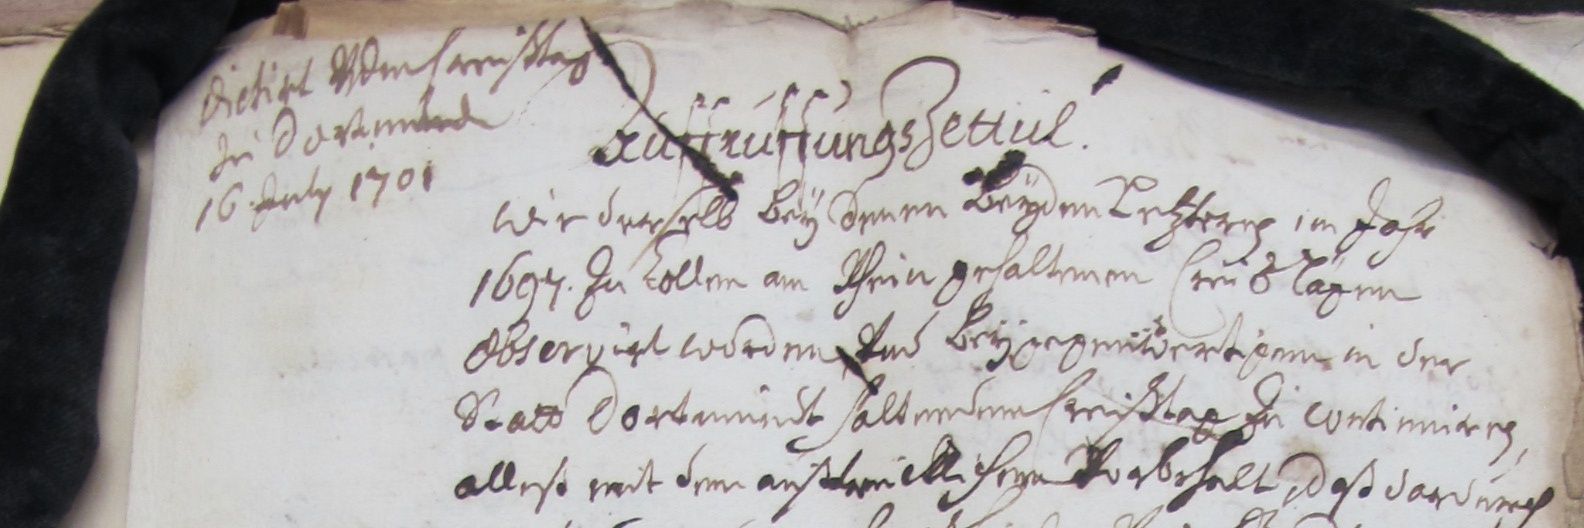 Dictirt Vom Creißtag
Zu Dortmund
16. July 1701
Auffruffungs Zettul.
wie derselb bey denen beyden letzteren im Jahr
1697. Zu Cöllen am Rhein gehaltenen Creiß Tägen
observirt worden, Und bey gegenwertigem in der
Statt Dortmundt haltendem Creißtag Zu continuiren,
alleß mit dem außtrücklichen Vorbehalt, daß dardurch